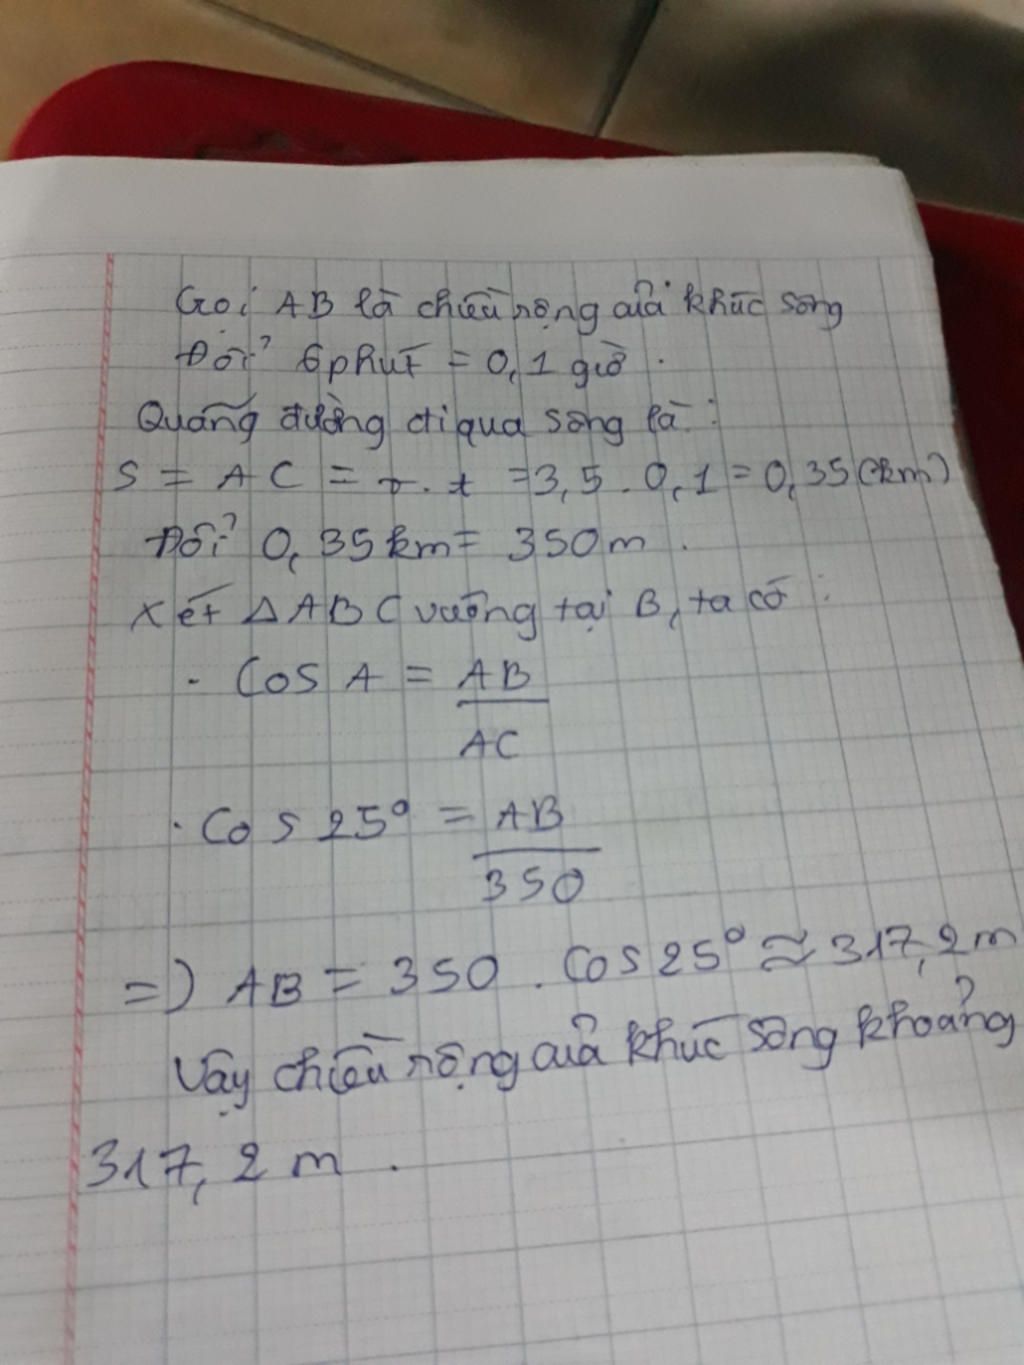 Gọi AB là chiều rộng của khúc sông
Đổi 6 phút = 0,1 giờ.
Quãng đường đi qua sông là:
S = AC = v.t = 3,5 . 0,1 = 0,35 (km)
Đổi 0,35 km = 350 m.
Xét △ABC vuông tại B, ta có:
. Cos A = AB/AC
. Cos 25° = AB/350
=) AB = 350 . Cos 25° ≈ 317,2 m
Vậy chiều rộng của khúc sông khoảng
317,2 m.